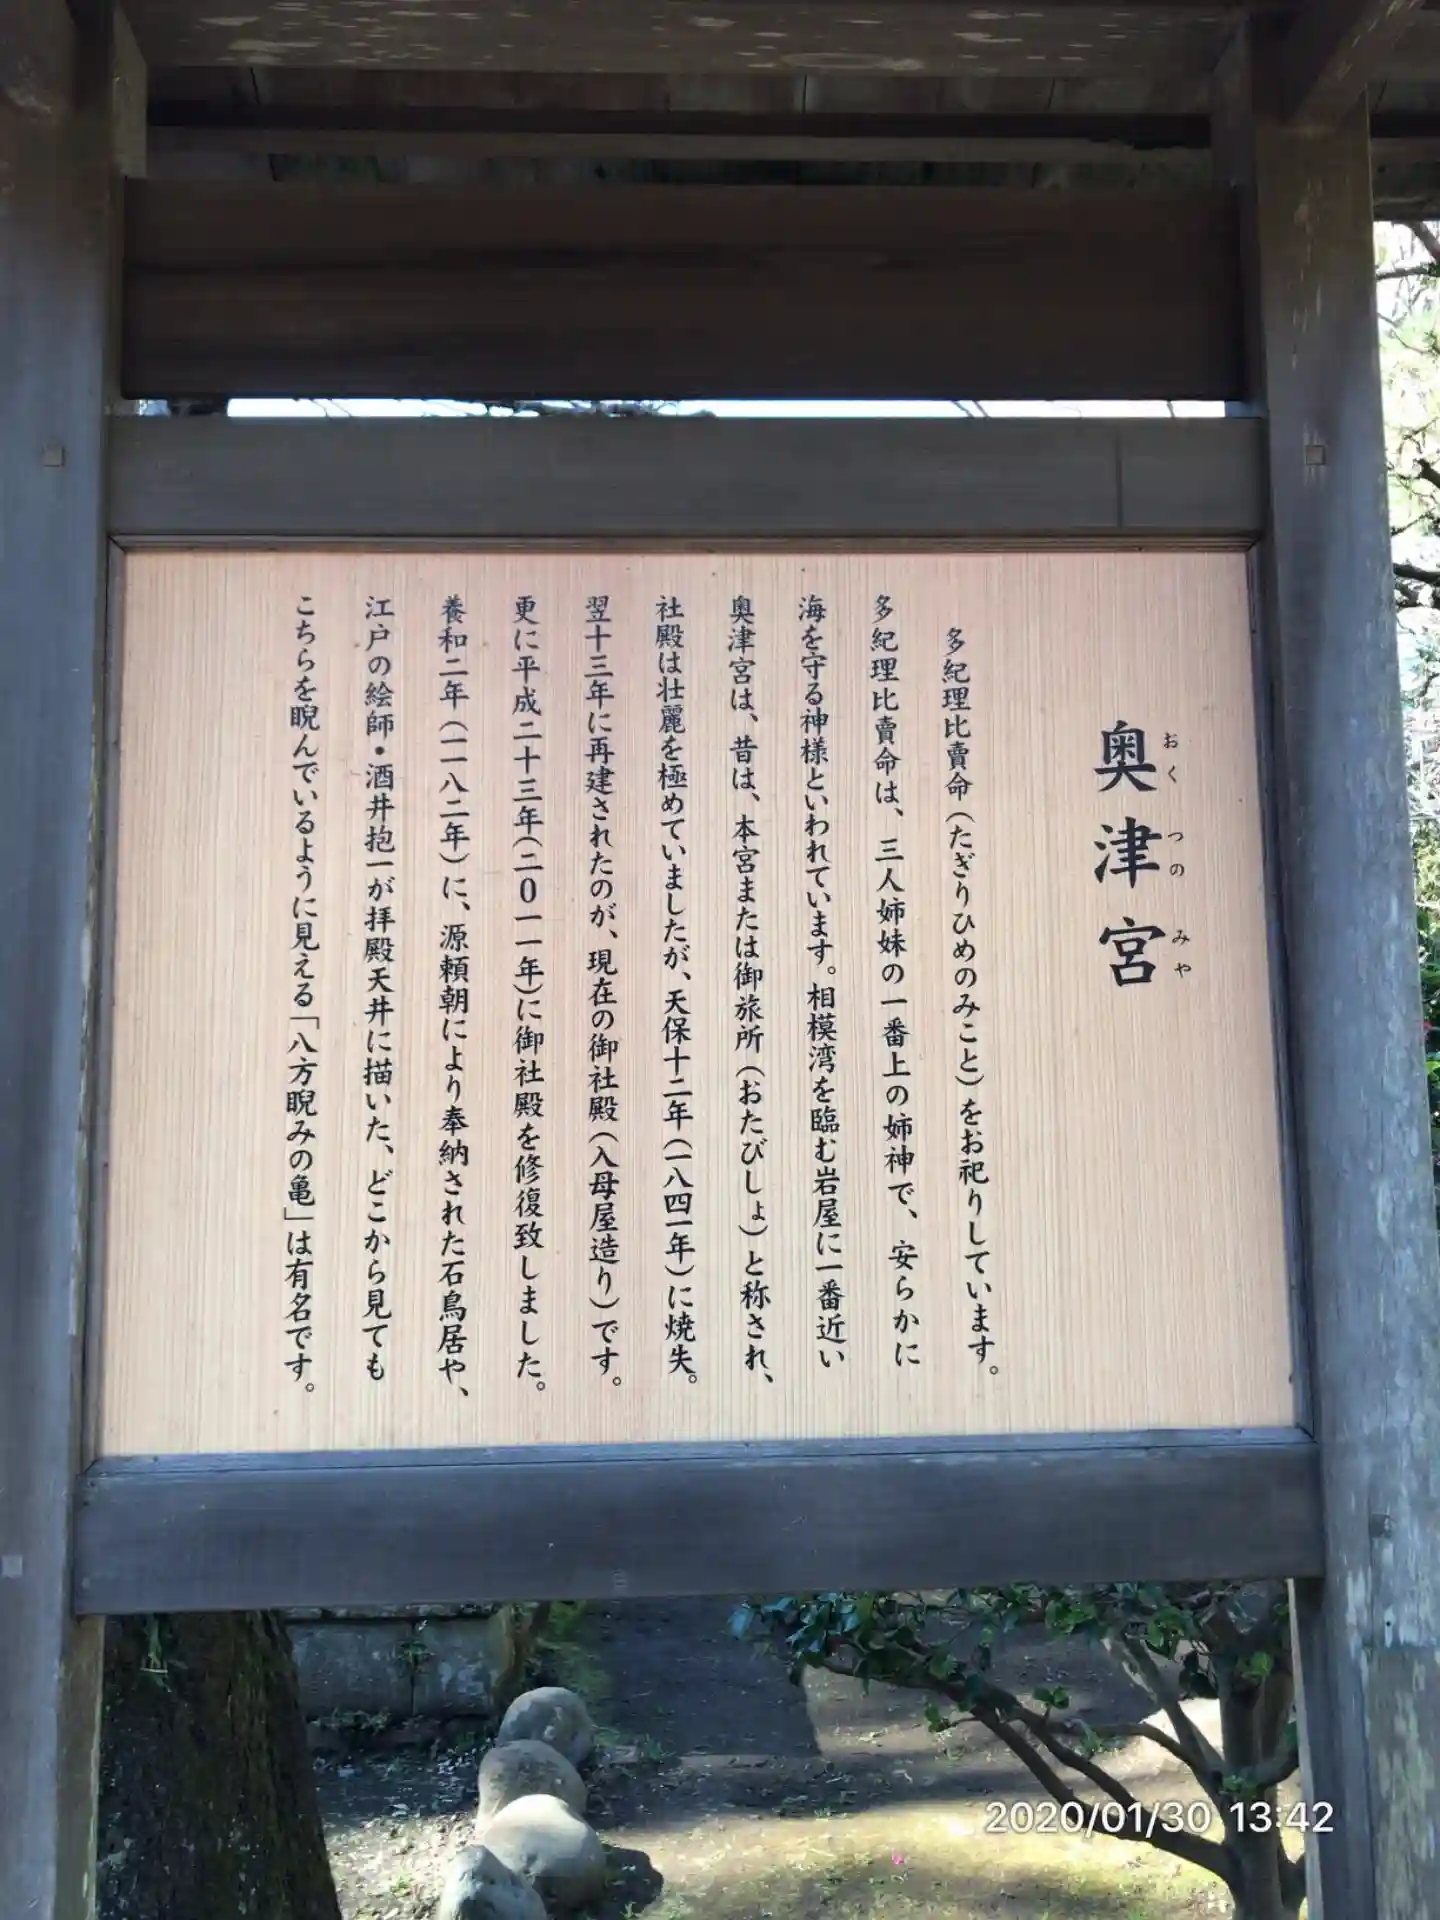 奥津宮
おくつのみや
多紀理比賣命(たぎりひめのみこと)をお祀りしています。
多紀理比賣命は、三人姉妹の一番上の姉神で、安らかに
海を守る神様といわれています。相模湾を臨む岩屋に一番近い
奥津宮は、昔は、本宮または御旅所(おたびしょ)と称され、
社殿は壮麗を極めていましたが、天保十二年(一八四一年)に焼失。
翌十三年に再建されたのが、現在の御社殿(入母屋造り)です。
更に平成二十三年(二0一一年)に御社殿を修復致しました。
養和二年(一一八二年)に、源頼朝により奉納された石鳥居や、
江戸の絵師・酒井抱一が拝殿天井に描いた、どこから見ても
こちらを睨んでいるように見える「八方睨みの亀」は有名です。
2020/01/30 13:42